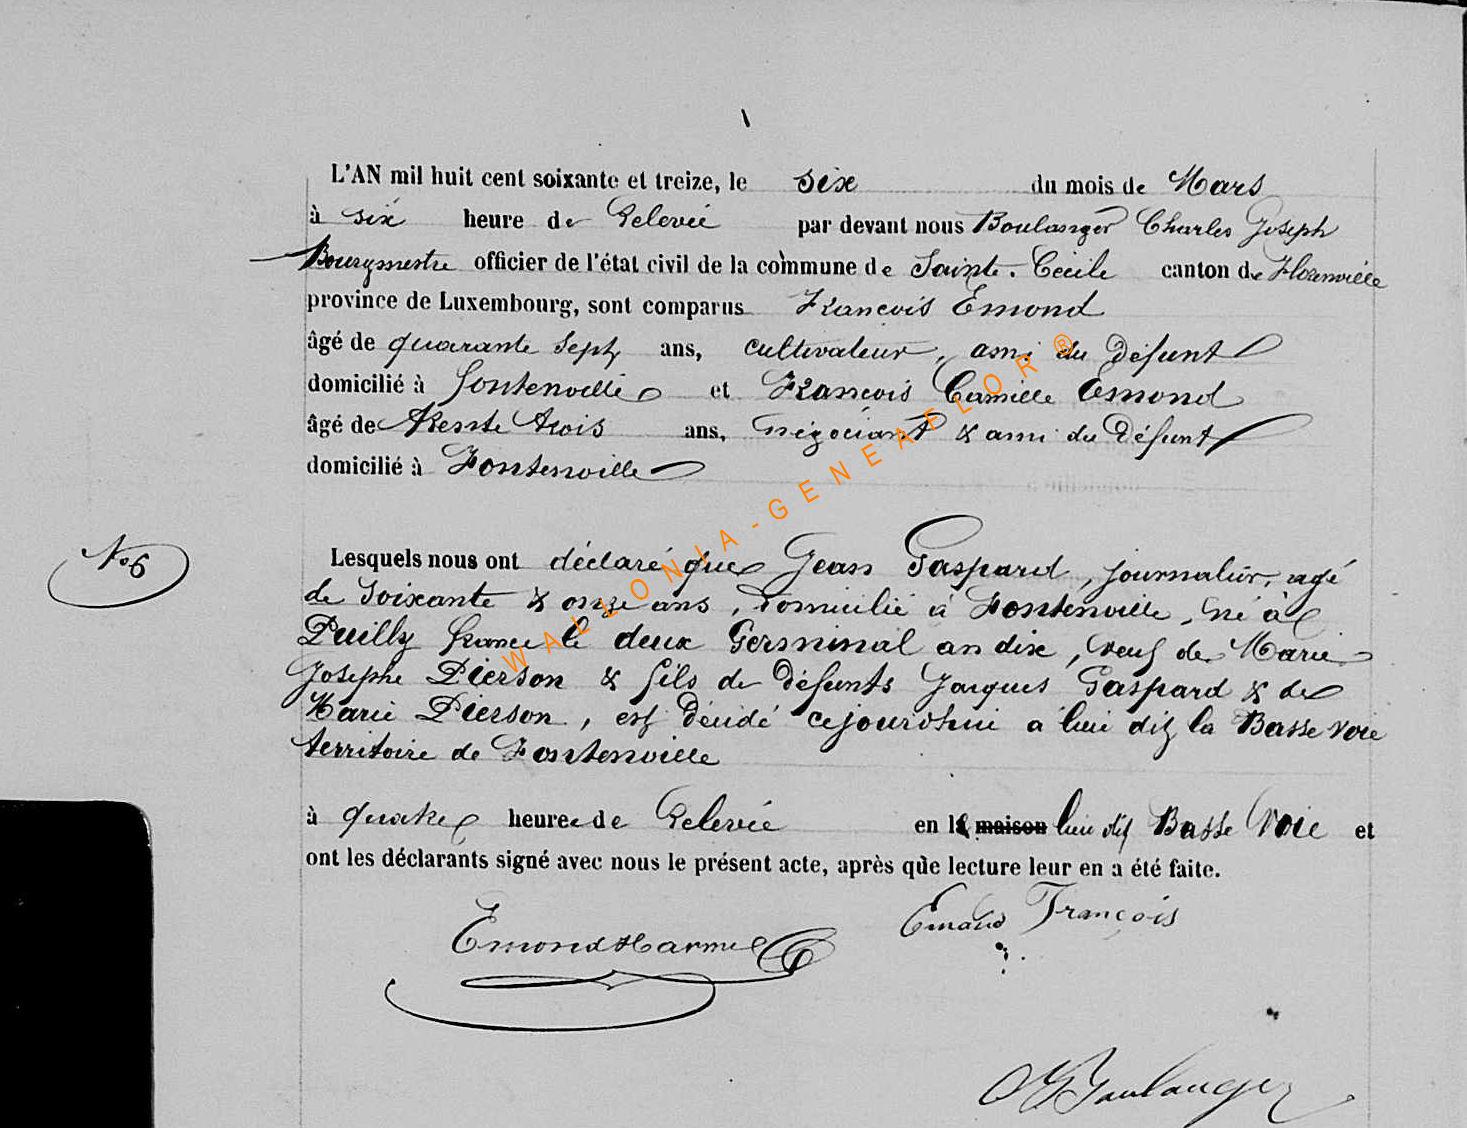 L'AN mil huit cent soixante et treize, le six du mois de Mars
à six heure de Relevée par devant nous Boulanger Charles Joseph
Bourgmestre officier de l'état civil de la commune de Sainte-Cécile canton de Florenville
province de Luxembourg, sont comparus François Emond
âgé de quarante sept ans, cultivateur, ami du défunt
domicilié à Fontenoille et François Camille Emond
âgé de trente trois ans, négociant & ami du Défunt
domicilié à Fontenoille
No 6
Lesquels nous ont déclaré que Jean Gaspard, journalier, agé
de Soixante & onze ans, Domicilié à Fontenoille, né à
Puilly france le deux Germinal an dix, veuf de Marie
Josephe Pierson & fils de défunts Jacques Gaspard & de
Marie Pierson, est Décédé cejourdhui a lieu dit la Basse voie
territoire de Fontenoille
à quatre heure de Relevée en la maison lieu dit Basse Voie et
ont les déclarants signé avec nous le présent acte, après que lecture leur en a été faite.
Emond Harmel
Emond François
Boulanger
WALLONIA-GENEAFLOR®